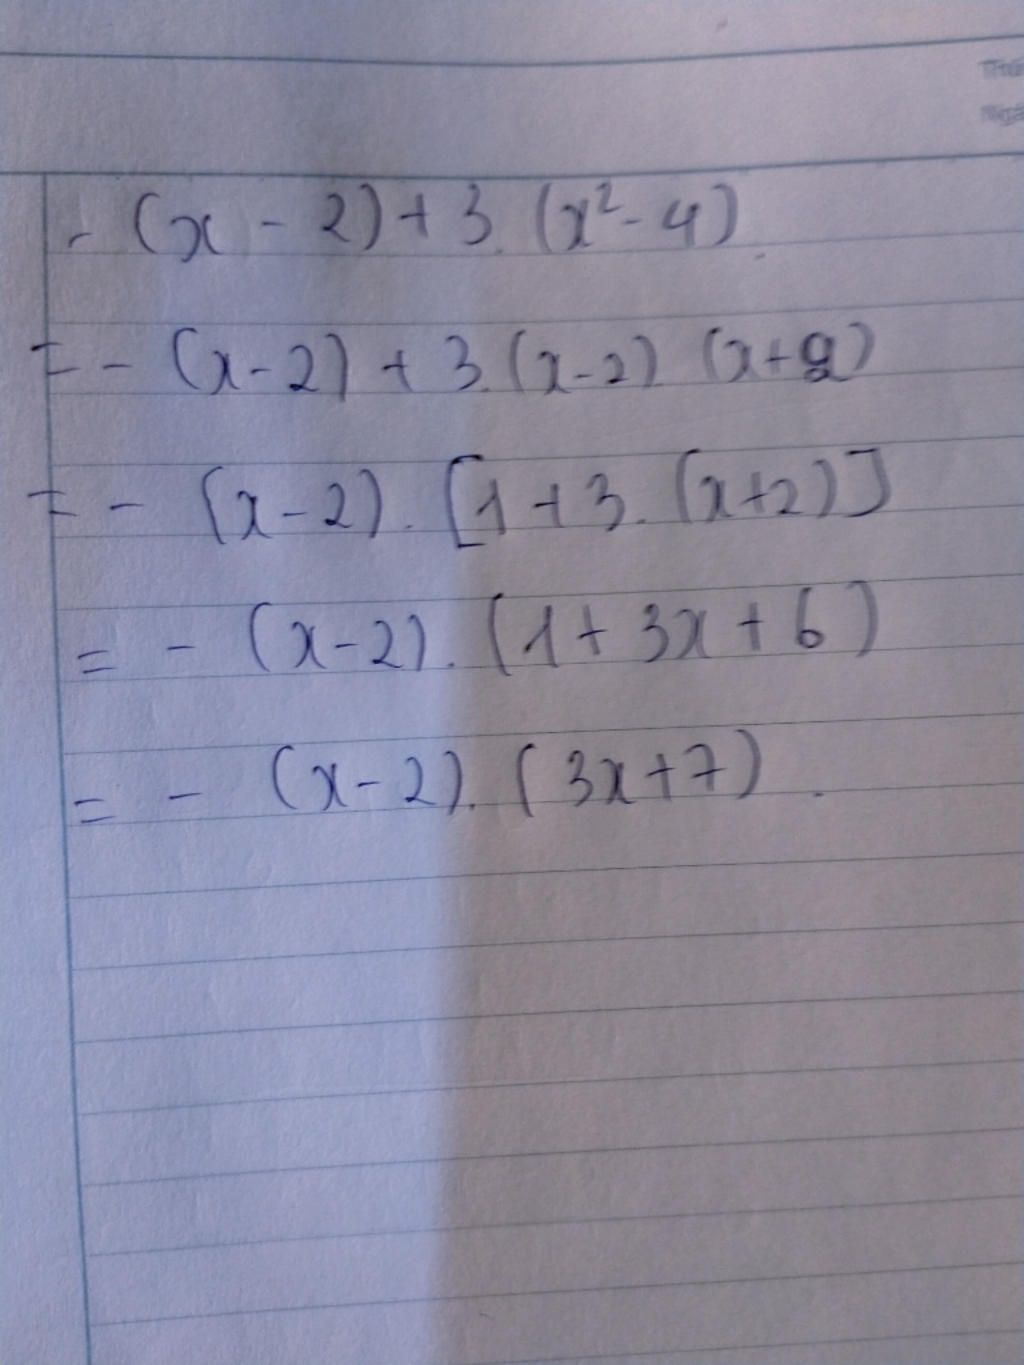 - (x - 2) + 3. (x² - 4)
= - (x - 2) + 3. (x - 2) (x + 2)
= - (x - 2). [1 + 3. (x + 2)]
= - (x - 2). (1 + 3x + 6)
= - (x - 2). (3x + 7).